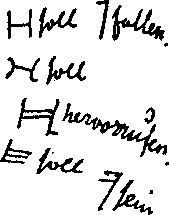 soll fallen.
soll
hervorrufen.
soll
sein